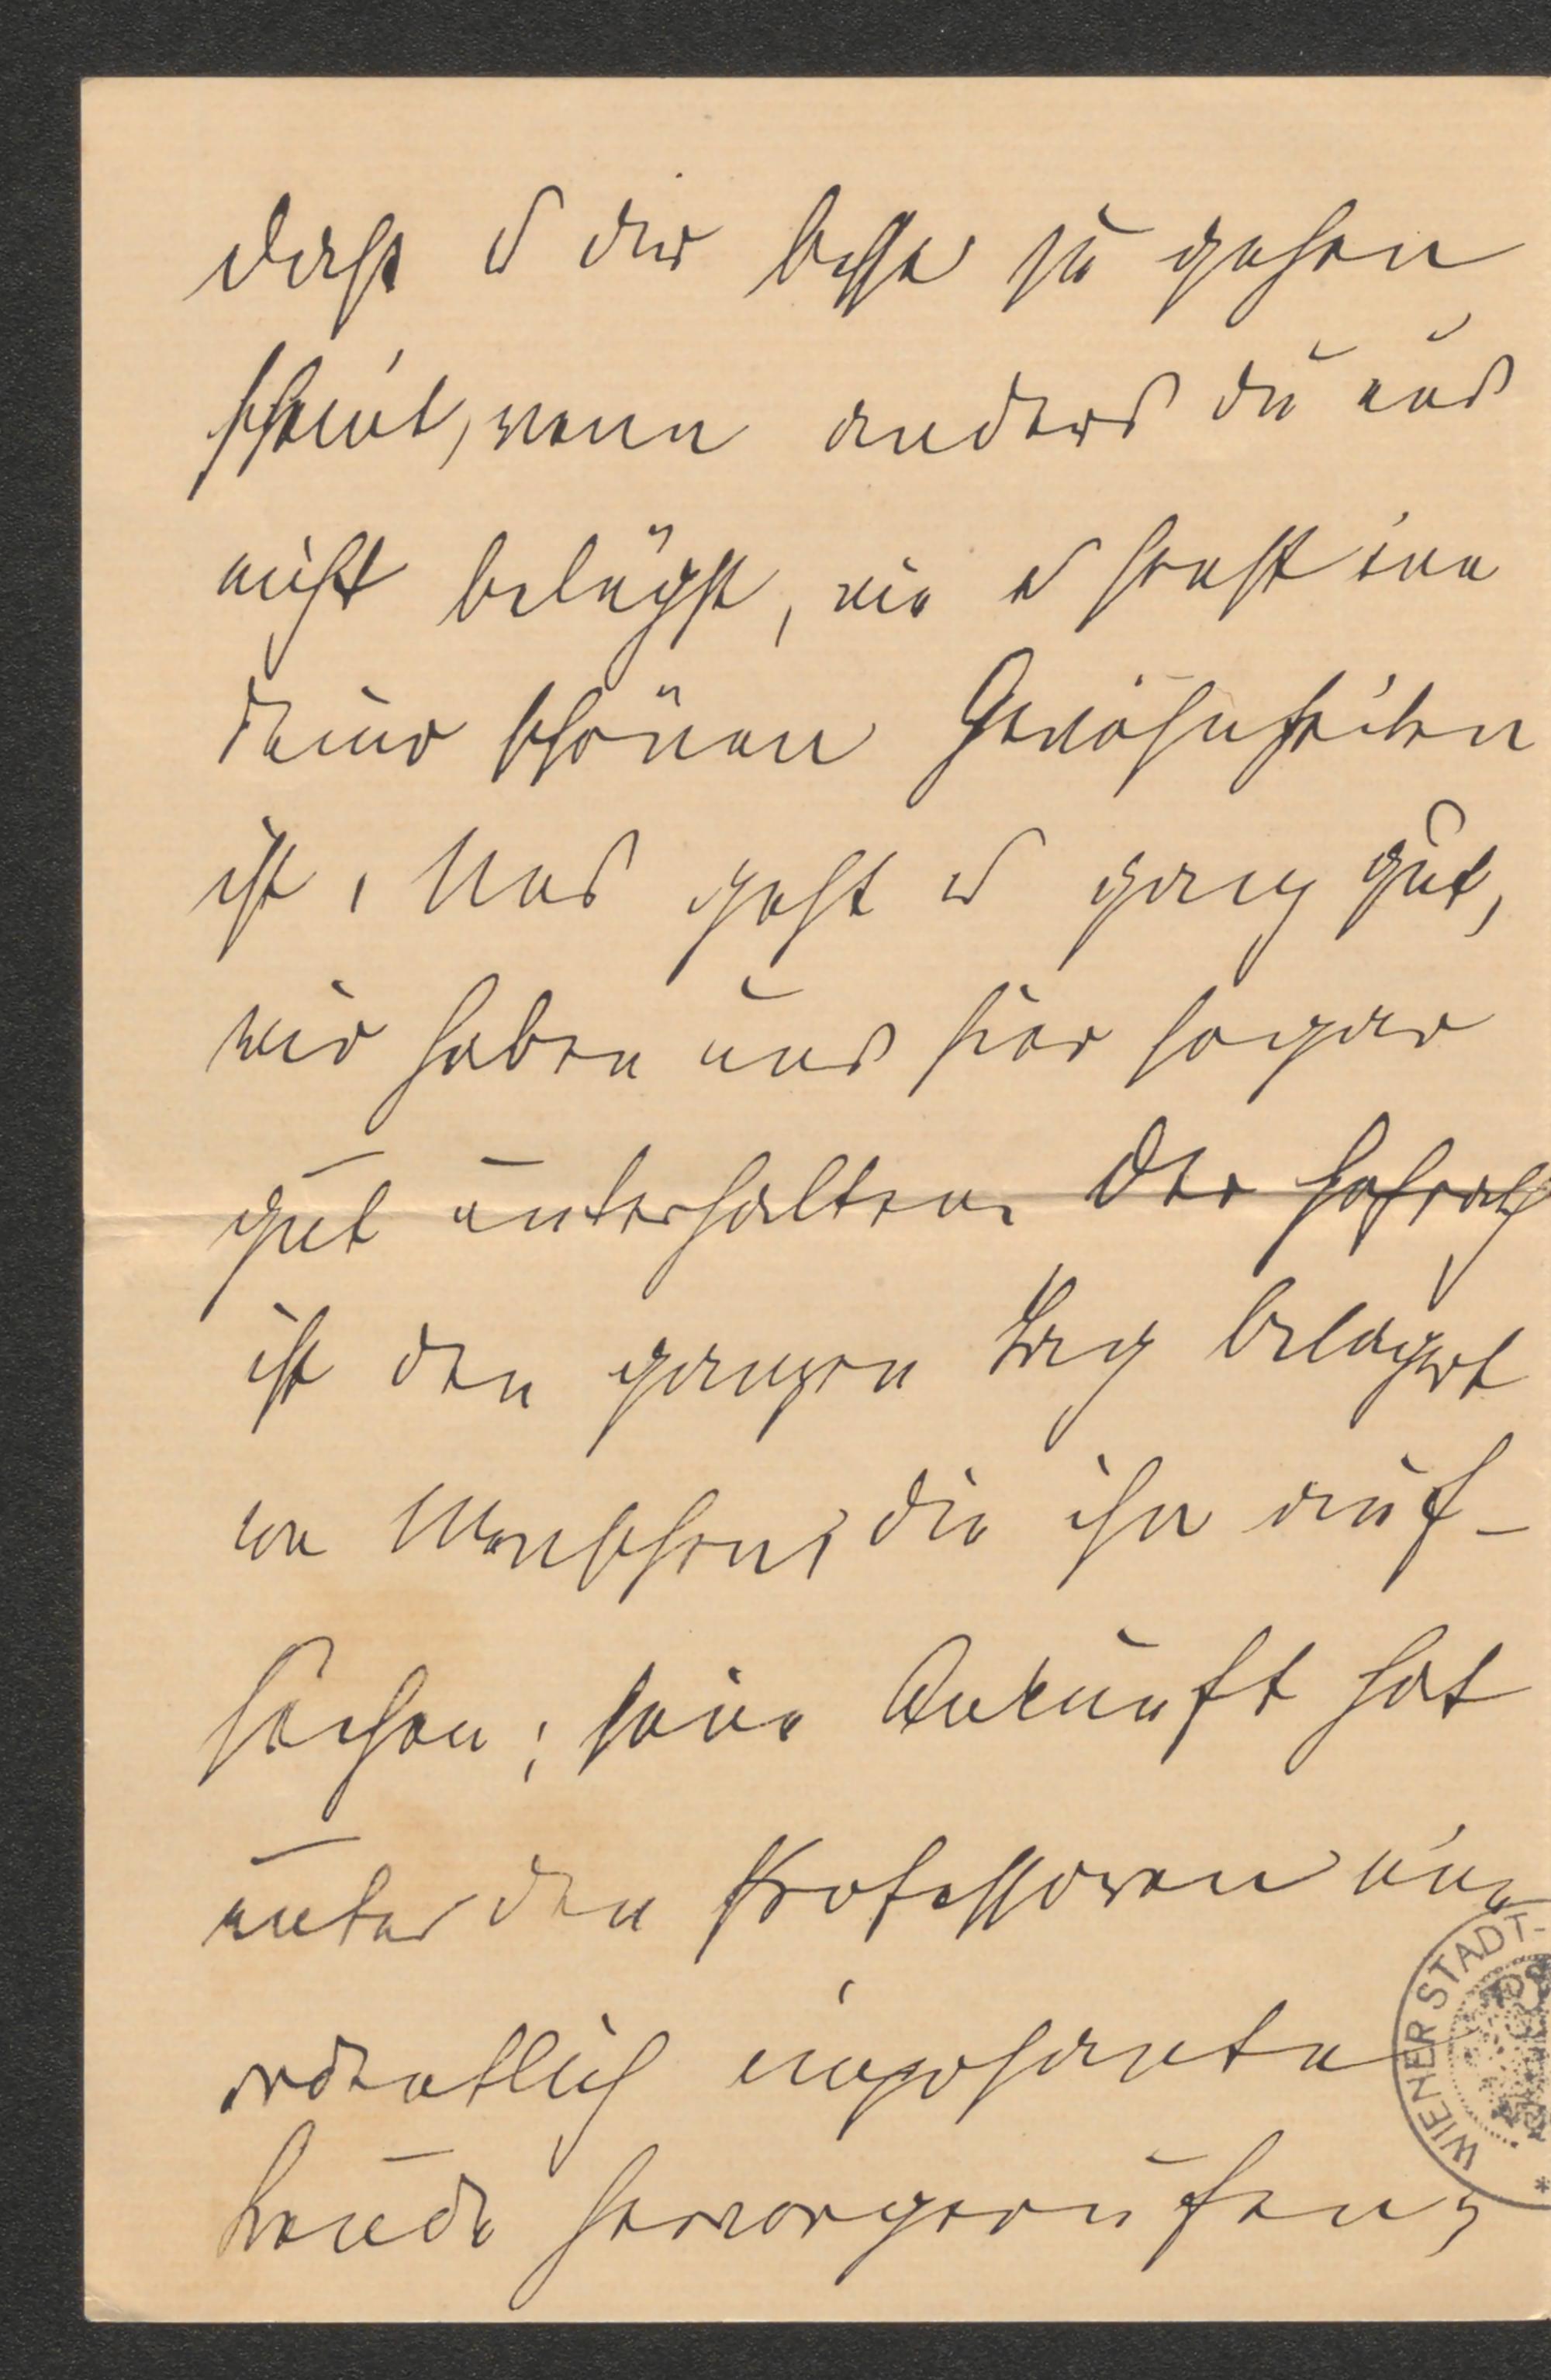 dass es dir besser zu gehen
scheint, wenn anders du uns
nicht belügst, wie es sonst eine
deiner schönen Gewohnheiten
ist. Uns geht es ganz gut,
wir haben uns hier sogar
gut unterhalten. Der Hofrath
ist den ganzen Tag belagert
von Menschen, die ihn auf-
suchen; seine Ankunft hat
unter den Professoren eine
ordentlich imposante
Freude hervorgerufen,
WIENER STADT-